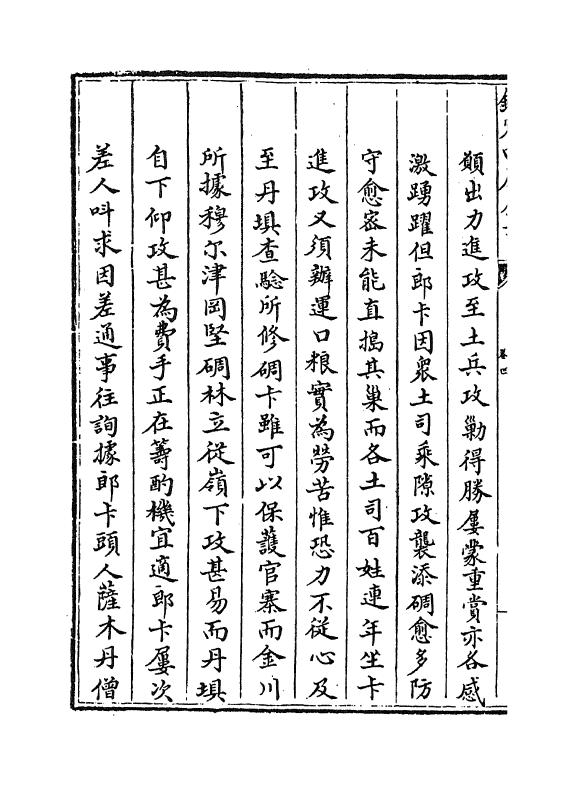 顛出力進攻至土兵攻勦得勝屢蒙重賞亦各感
激踴躍但郎卡因衆土司乘隙攻襲添碉愈多防
守愈密未能直搗其巢而各土司百姓連年坐卡
進攻又須辦運口粮實為勞苦惟恐力不從心及
至丹壩查驗所修碉卡雖可以保護官寨而金川
所據穆尔津岡堅碉林立從嶺下攻甚易而丹壩
自下仰攻甚為費手正在籌酌機宜適郎卡屢次
差人呌求因差通事往詢據郎卡頭人薩木丹僧